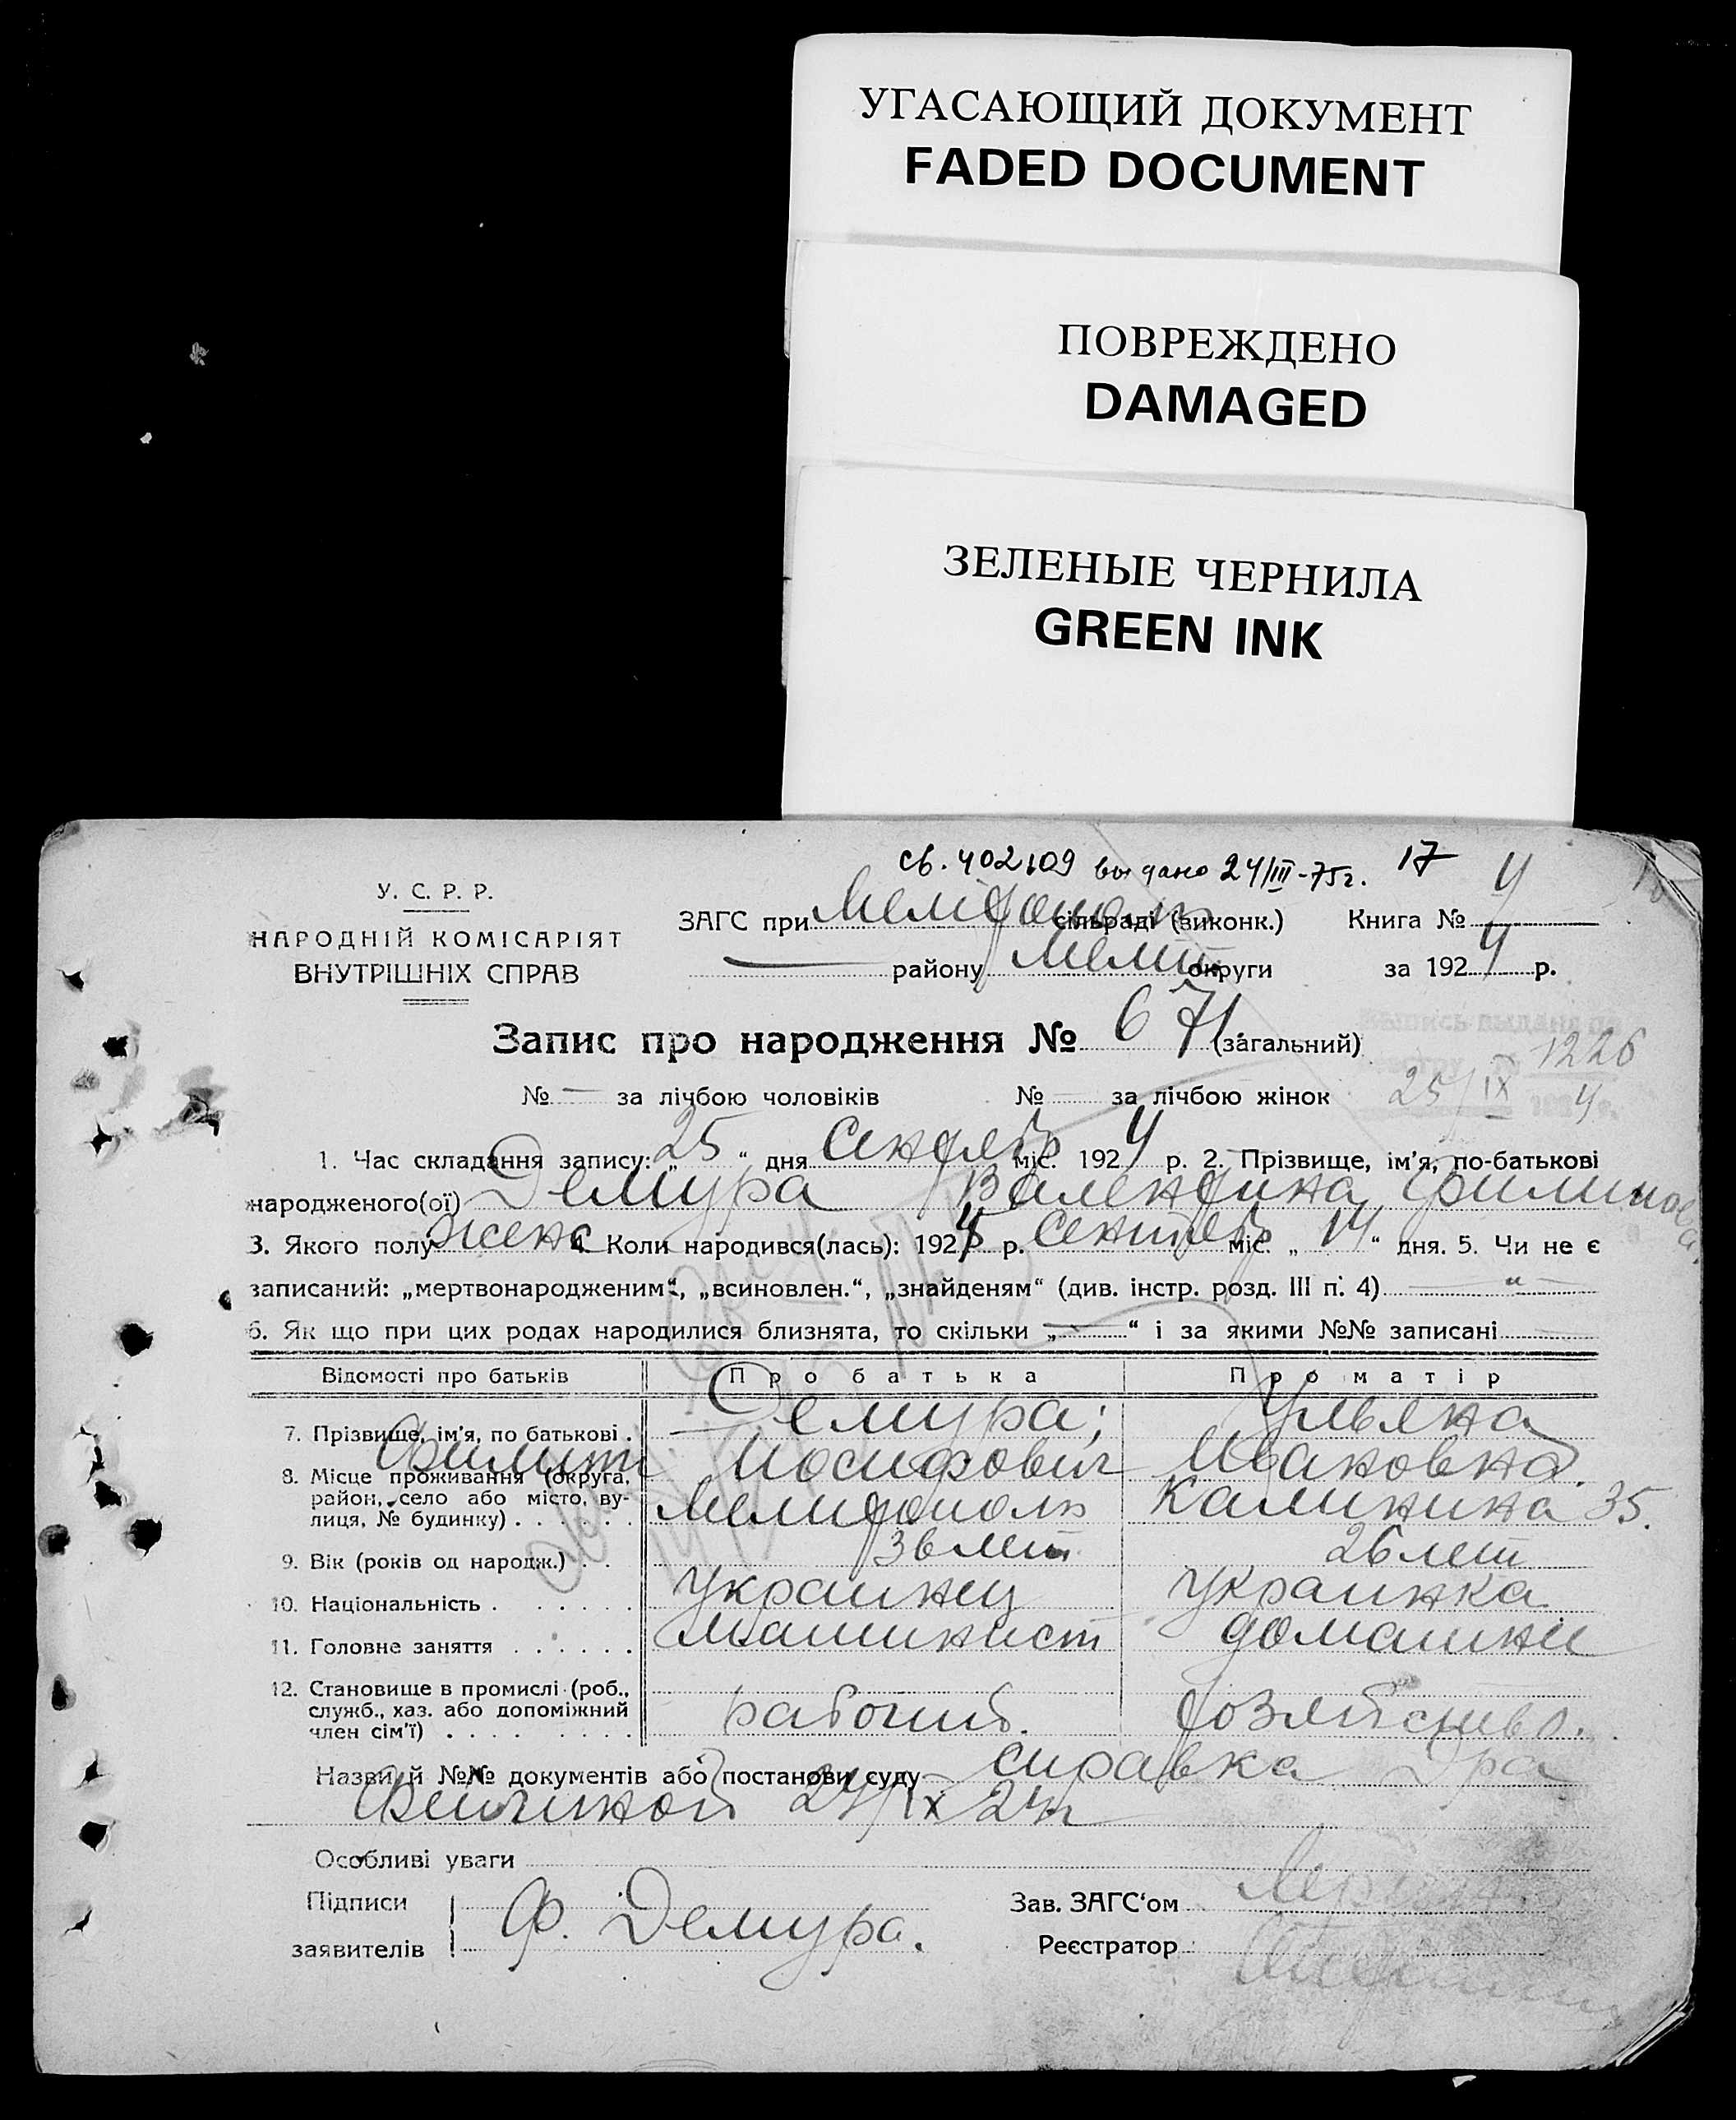 УГАСАЮЩИЙ ДОКУМЕНТ
FADED DOCUMENT
ПОВРЕЖДЕНО
DAMAGED
ЗЕЛЕНЫЕ ЧЕРНИЛА
GREEN INK
св. 402109 выдано 24/III-75г. 17
У. С. Р. Р.
НАРОДНІЙ КОМІСАРІЯТ
ВНУТРІШНІХ СПРАВ
ЗАГС при Мелитополь сільраді (виконк.) Книга № 4
— району Мелит округи за 1924 р.
Запис про народження № 671 (загальний)
1226
№ — за лічбою чоловіків № за лічбою жінок 25/IX 4
1. Час складання запису: „25“ дня Сентябр міс. 1924 р. 2. Прізвище, ім'я, по-батькові
народженого(ої) Демура Валентина Филипова
3. Якого полу женс 4. Коли народився(лась): 1924 р. Сентябр міс. „14“ дня. 5. Чи не є
записаний: „мертвонародженим“, „всиновлен.“, „знайденям“ (див. інстр. розд. III п. 4) — " —
6. Як що при цих родах народилися близнята, то скільки „—“ і за якими №№ записані
Відомості про батьків Про батька Про матір
7. Прізвище, ім'я, по батькові . Демура; Филипп Иосифович Ульяна Ивановна.
8. Місце проживання (округа, район, село або місто, вулиця, № будинку) . . . . . Мелитополь Калинина 35.
9. Вік (років од народж.) . . 36 лет 26 лет
10. Національність . . . . . . Украинец Украинка
11. Головне заняття . . . . . . Машинист домашнее
12. Становище в промислі (роб., служб., хаз. або допоміжний член сім'ї) . . . . . . . . рабочий. хозяйство.
Назви й №№ документів або постанови суду справка Дра
24/IX 24г
Особливі уваги
Підписи
заявителів Ф. Демура.
Зав. ЗАГС'ом
Реєстратор